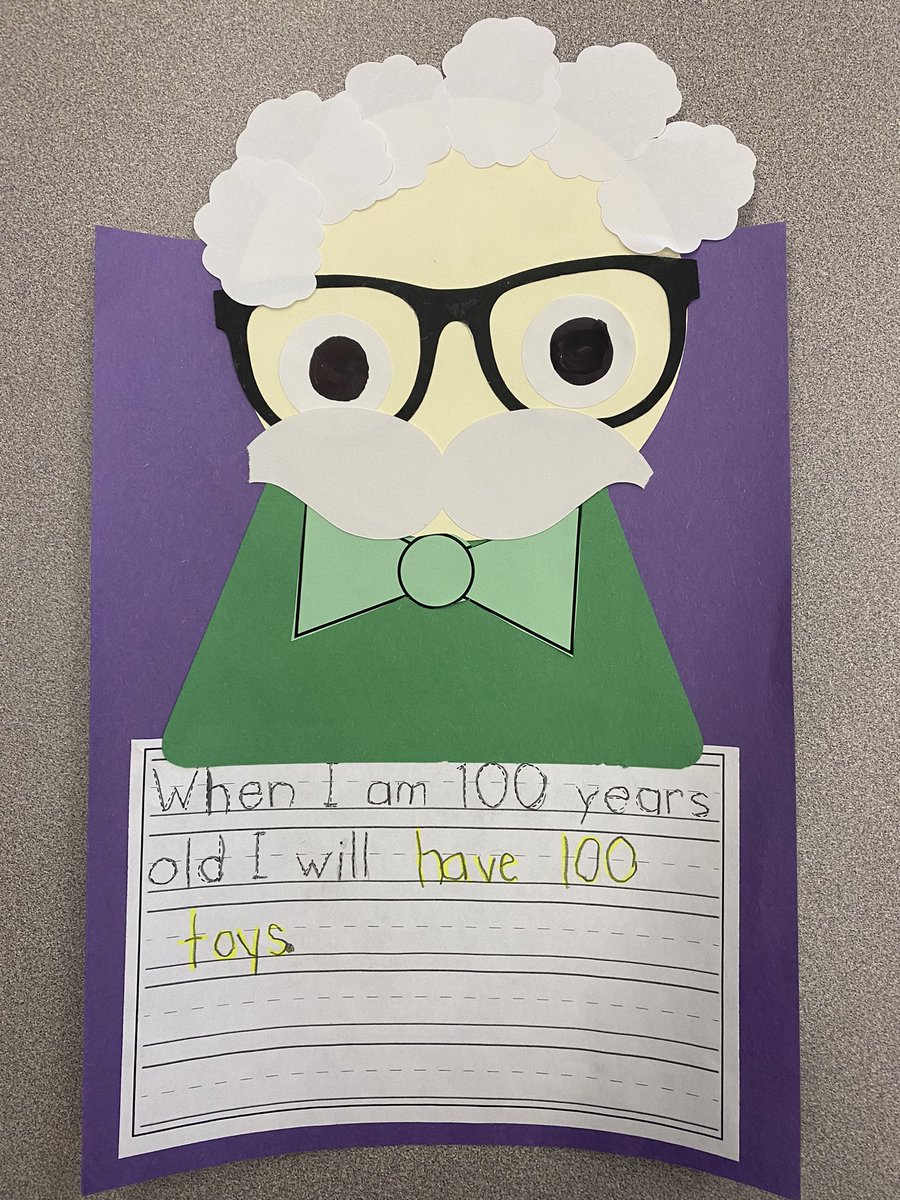 When I am 100 years
old I will have 100
toys.